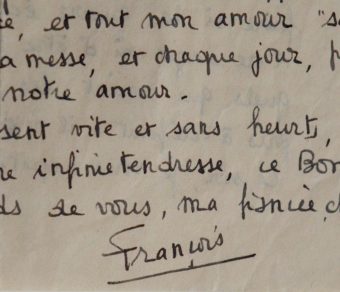 et tout mon amour "s
a messe, et chaque jour, p
notre amour.
sent vite et sans heurts,
e infinie tendresse, ce Bon
ds de vous, ma fiancée, c
François